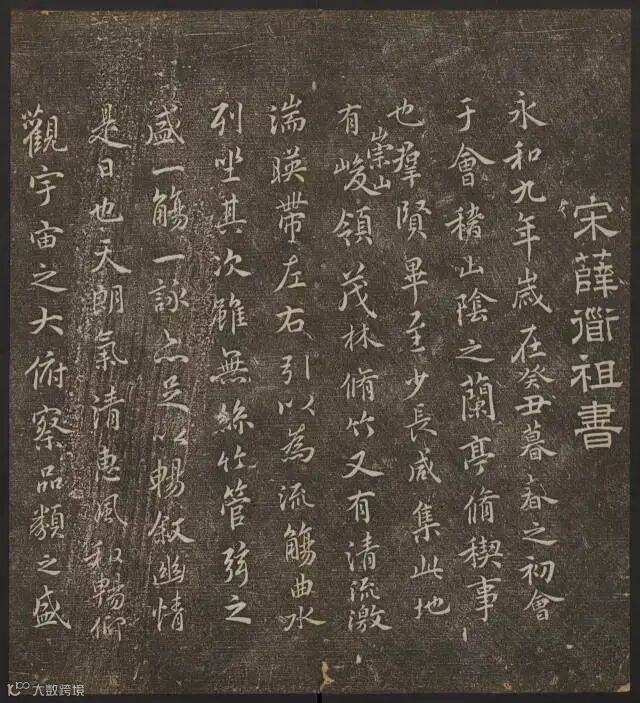 宋薛衜祖書
永和九年歲在癸丑暮春之初會
于會稽山陰之蘭亭脩稧事
也羣賢畢至少長咸集此地
有崇山峻領茂林脩竹又有清流激
湍暎帶左右引以為流觴曲水
列坐其次雖無絲竹管弦之
盛一觴一詠亦足以暢敘幽情
是日也天朗氣清惠風和暢仰
觀宇宙之大俯察品類之盛
大数跨境